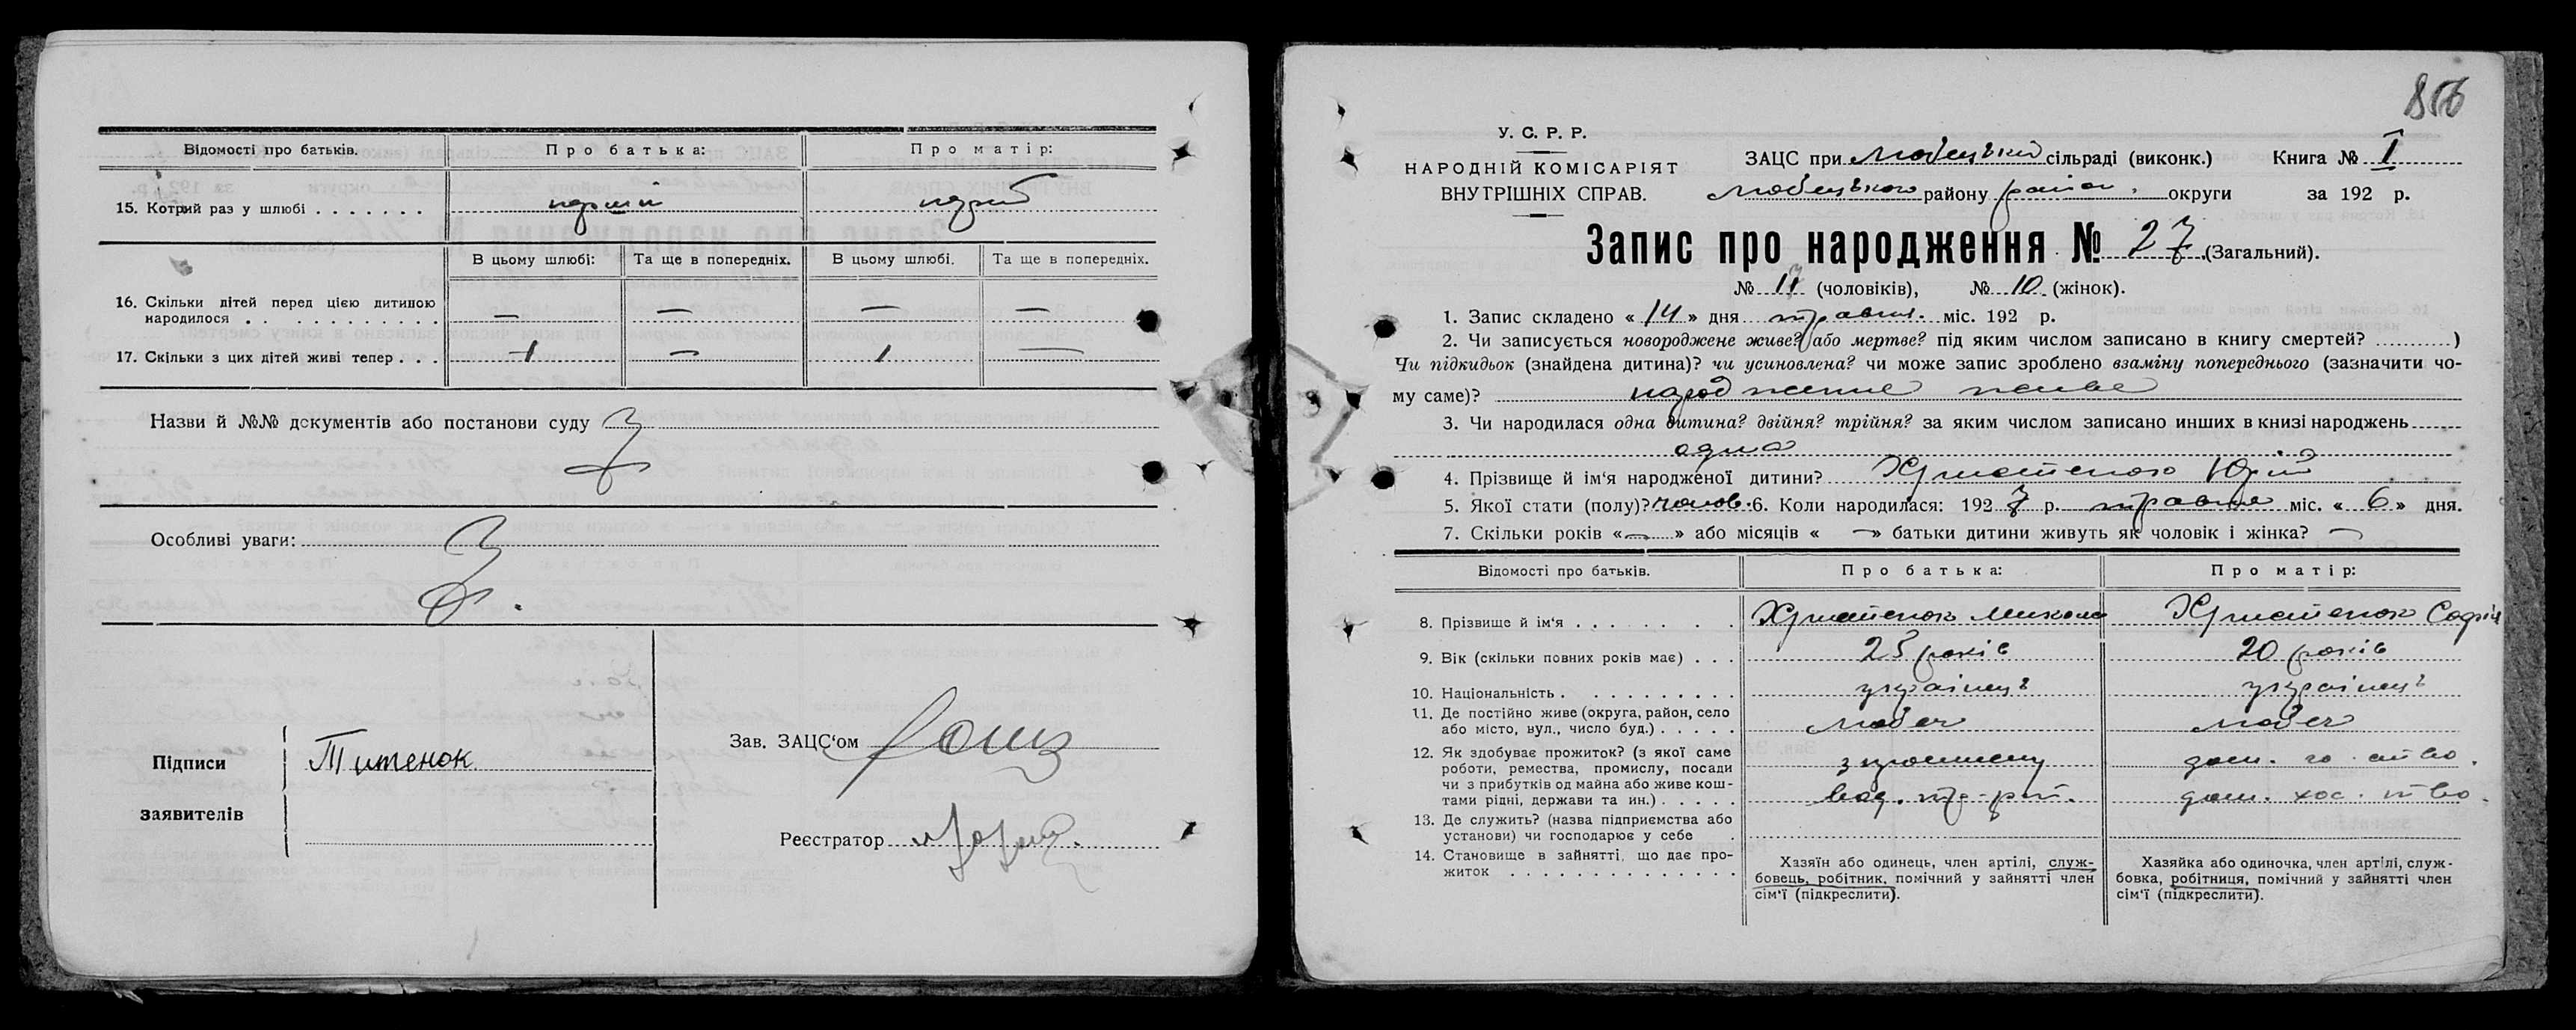 Відомості про батьків. Про батька: Про матір:
15. Котрий раз у шлюбі . . . . . . . перший
В цьому шлюбі: Та ще в попередніх. В цьому шлюбі. Та ще в попередніх.
16. Скільки дітей перед цією дитиною
народилося . . . . . . . . . . — — — —
17. Скільки з цих дітей живі тепер . . . 1 — 1 —
Назви й №№ документів або постанови суду
Особливі уваги:
Підписи
заявителів
Титенок
Зав. ЗАЦС'ом
Реєстратор
856
У. С. Р. Р.
НАРОДНІЙ КОМІСАРІЯТ
ВНУТРІШНІХ СПРАВ.
ЗАЦС при Любецькій сільраді (виконк.) Книга № I
Любецького району округи за 192 р.
Запис про народження № 27 (Загальний).
№ 17 (чоловіків), № 10. (жінок).
1. Запис складено « 14 » дня травня міс. 192 р.
2. Чи записується новороджене живе? або мертве? під яким числом записано в книгу смертей? ...........)
Чи підкидьок (знайдена дитина)? чи усиновлена? чи може запис зроблено взаміну попереднього (зазначити чо-
му саме)? народжене живе
3. Чи народилася одна дитина? двійня? трійня? за яким числом записано инших в книзі народжень
одна
4. Прізвище й ім'я народженої дитини? Юрій
5. Якої стати (полу)? чолов. 6. Коли народилася: 1927 р. травня міс. « 6 » дня.
7. Скільки років « — » або місяців « — » батьки дитини живуть як чоловік і жінка? —
Відомості про батьків. Про батька: Про матір:
8. Прізвище й ім'я . . . . . . . Микола Софія
9. Вік (скільки повних років має) . . . 25 років 20 років
10. Національність . . . . . . . . . . українець українець
11. Де постійно живе (округа, район, село
або місто, вул., число буд.) . . . . . Любеч Любеч
12. Як здобуває прожиток? (з якої саме
роботи, ремества, промислу, посади
чи з прибутків од майна або живе кош-
тами рідні, держави та ин.) . . . . . дом. хос. тво.
13. Де служить? (назва підприємства або
установи) чи господарює у себе .
14. Становище в зайнятті, що дає про-
житок . . . . . . . . . . . . . .
Хазяїн або одинець, член артілі, служ-
бовець, робітник, помічний у зайнятті член
сім'ї (підкреслити).
Хазяйка або одиночка, член артілі, служ-
бовка, робітниця, помічний у зайнятті член
сім'ї (підкреслити).